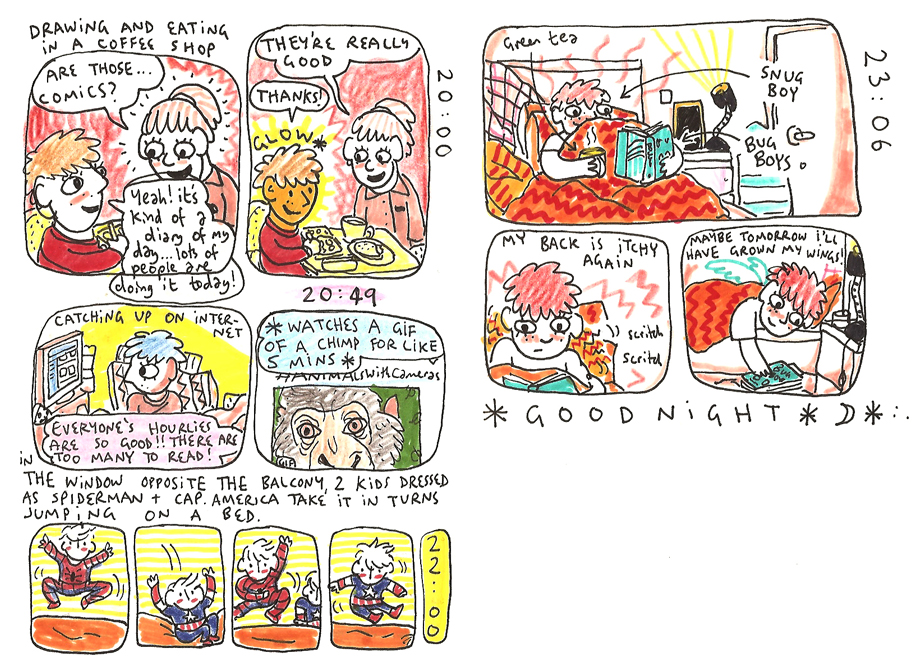 DRAWING AND EATING
IN A COFFEE SHOP
ARE THOSE...
COMICS?
Yeah! it's
kind of a
diary of my
day... lots of
people are
doing it today!
THEY'RE REALLY
GOOD
THANKS!
GLOW*
20:00
20:49
CATCHING UP ON INTER-
NET
EVERYONE'S HOURLIES
ARE SO GOOD!! THERE ARE
TOO MANY TO READ!
* WATCHES A GIF
OF A CHIMP FOR LIKE
5 MINS *
#ANIMALSWithCameras
GIF
in
THE WINDOW OPPOSITE THE BALCONY, 2 KIDS DRESSED
AS SPIDERMAN + CAP. AMERICA TAKE IT IN TURNS
JUMPING ON A BED.
22:00
Green tea
SNUG
BOY
BUG
BOYS.
23:06
MY BACK IS ITCHY
AGAIN
scritch
scritch
MAYBE TOMORROW I'LL
HAVE GROWN MY WINGS!
* GOODNIGHT *